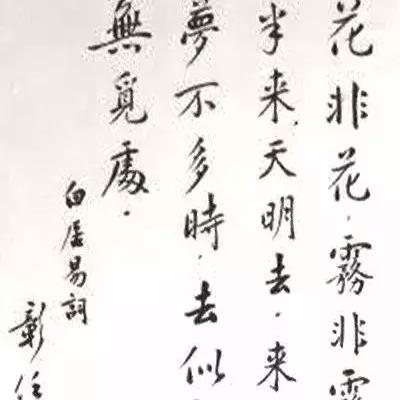 花非花，霧非
半来，天明去，来
夢不多時，去似
無覓處。
白居易詞
彰